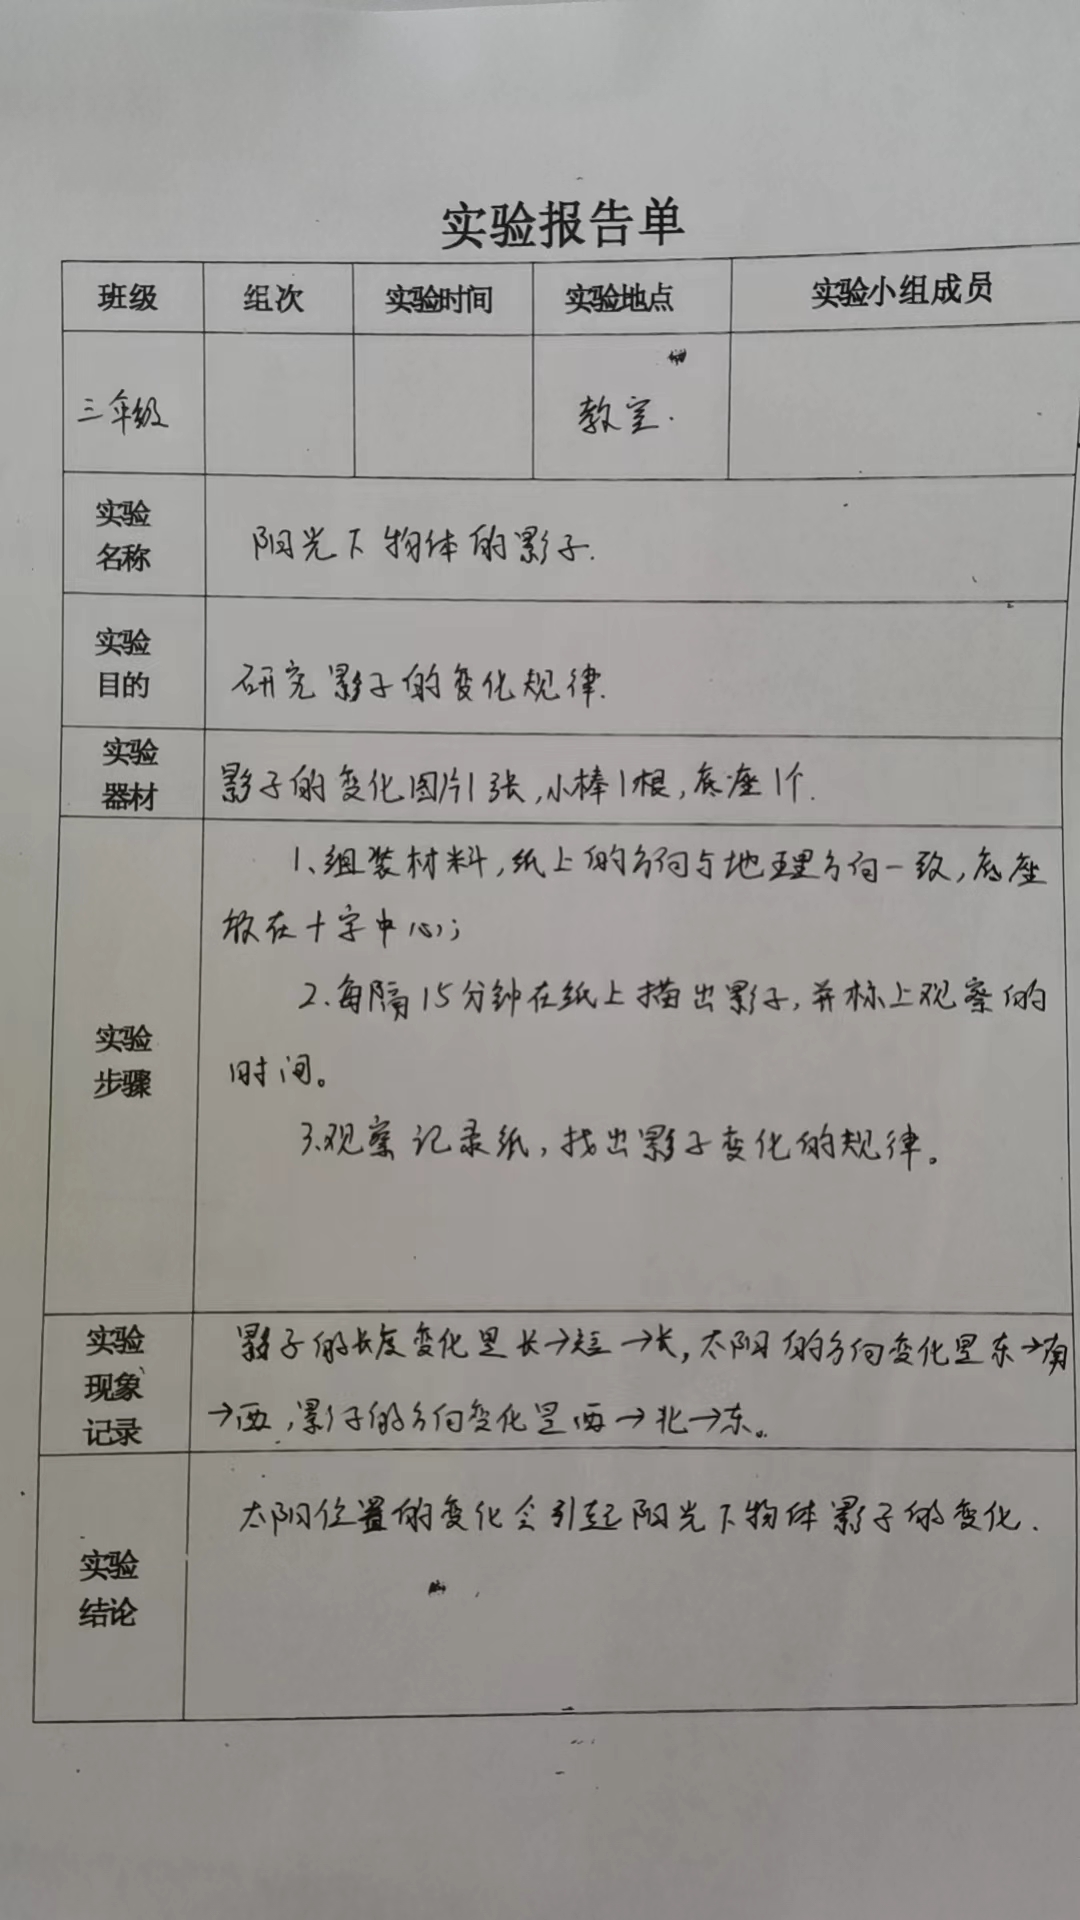 实验报告单
班级 组次 实验时间 实验地点 实验小组成员
三年级 教室.
实验
名称
阳光下物体的影子.
实验
目的
研究影子的变化规律.
实验
器材
影子的变化图片1张,小棒1根,底座1个.
实验
步骤
1、组装材料,纸上的方向与地理方向一致,底座
放在十字中心;
2、每隔15分钟在纸上描出影子,并标上观察的
时间。
3、观察记录纸,找出影子变化的规律。
实验
现象
记录
影子的长度变化是长→短→长,太阳的方向变化是东→南
→西,影子的方向变化是西→北→东。
实验
结论
太阳位置的变化会引起阳光下物体影子的变化.